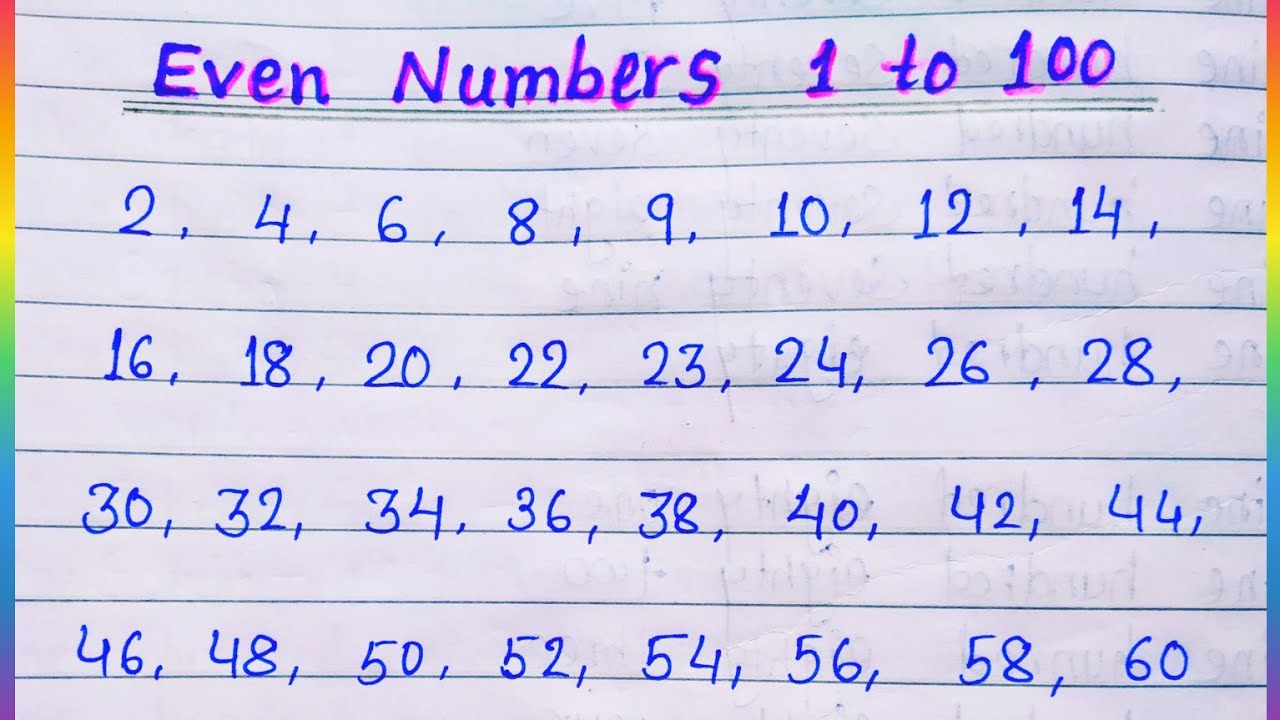 Even Numbers 1 to 100
2, 4, 6, 8, 9, 10, 12, 14,
16, 18, 20, 22, 23, 24, 26, 28,
30, 32, 34, 36, 38, 40, 42, 44,
46, 48, 50, 52, 54, 56, 58, 60